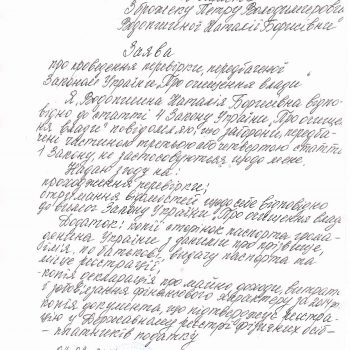 Зброжеку Петру Володимирович
Водопшиної Наталії Борисівни
Заява
про проведення перевірки, передбаченої
Законом України „Про очищення влади"
Я, Водопшина Наталія Борисівна відпо-
відно до статті 4 Закону України „Про очищен-
ня влади" повідомляю, що заборони, передба-
чені частиною третьою або четвертою статті
1 Закону, не застосовуються щодо мене.
Надаю згоду на:
проходження перевірки;
отримання відомостей щодо себе відповідно
до вимог Закону України „Про очищення влади
Додаток: копії сторінок паспорта грома-
дянина України з даними про прізвище,
ім'я, по батькові, видачу паспорта та
місце реєстрації;
-копія декларації про майно, доходи, витрати
і зобов'язання фінансового характеру за
копія документа, що підтверджує реєстра-
цію у Державному реєстрі фізичних осіб
- платників податку